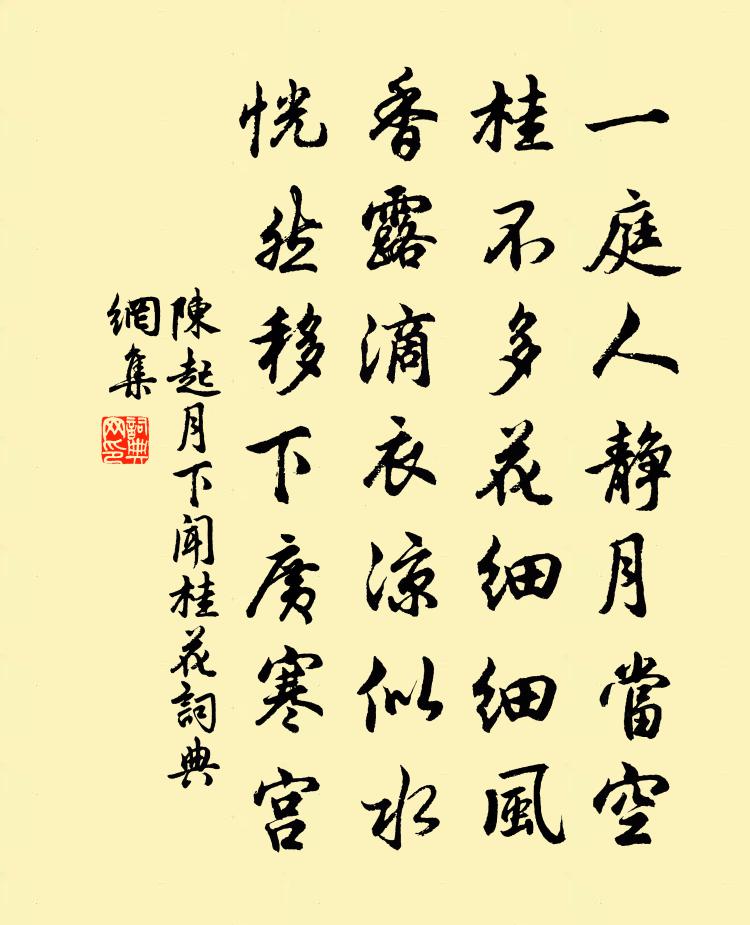 一庭人靜月當空
桂不多花細細風
香露滴衣凉似水
恍然移下廣寒宮
陳起月下聞桂花詞典
網集
詞典
网印